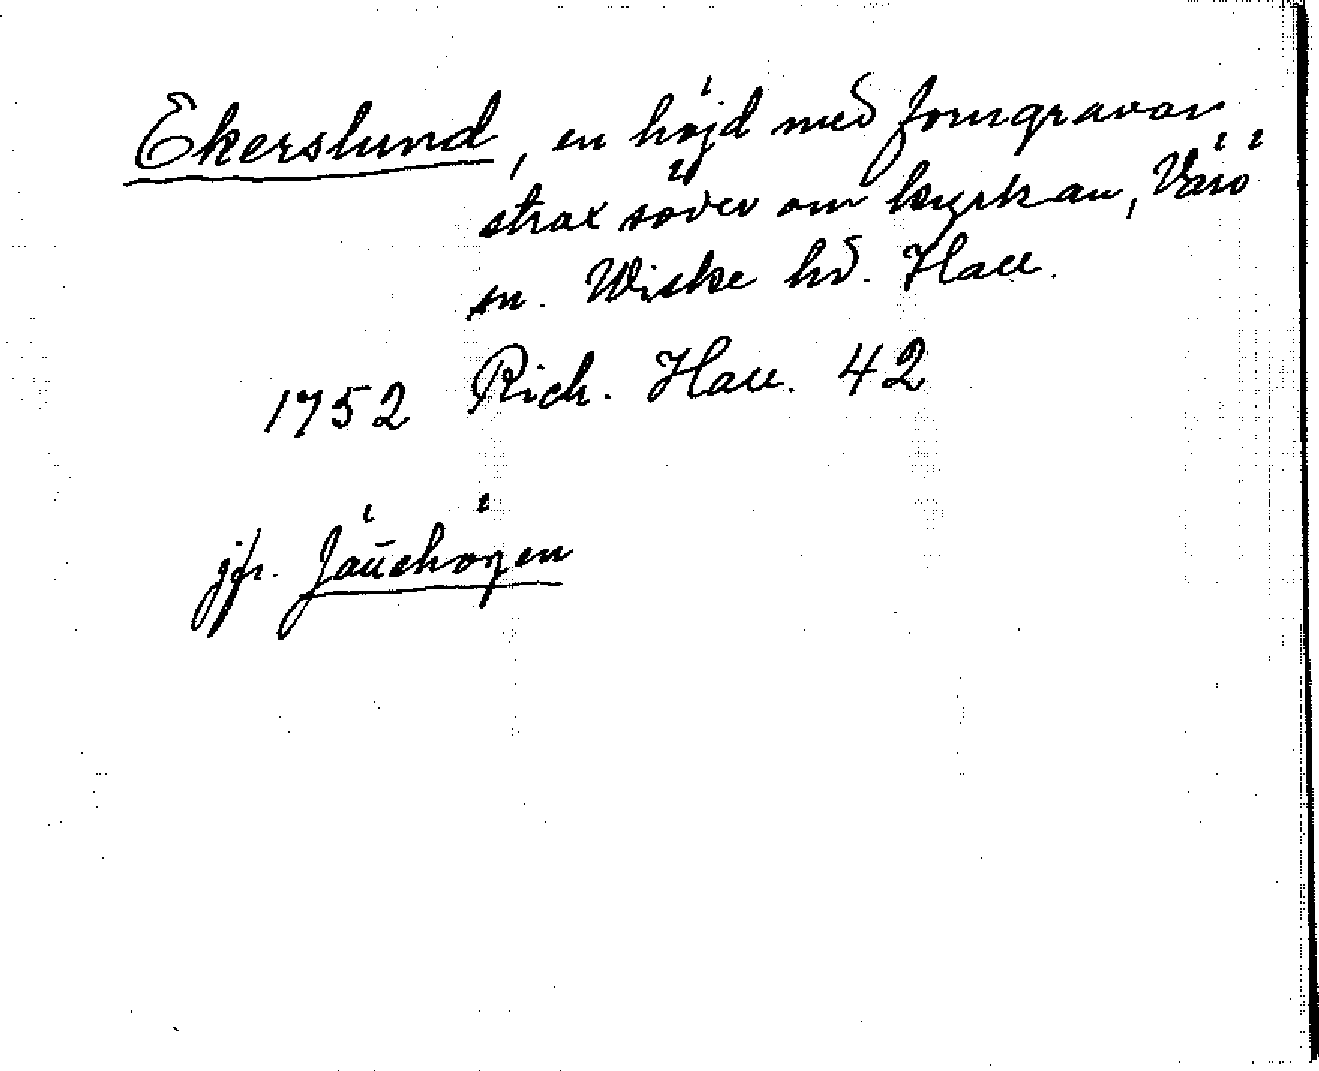 Ekerslund, en höjd med forngravar
strax söder om kyrkan, Värö
sn. Wiske hd. Hall.
1752 Rich. Hall. 42
jfr. Jännehögen